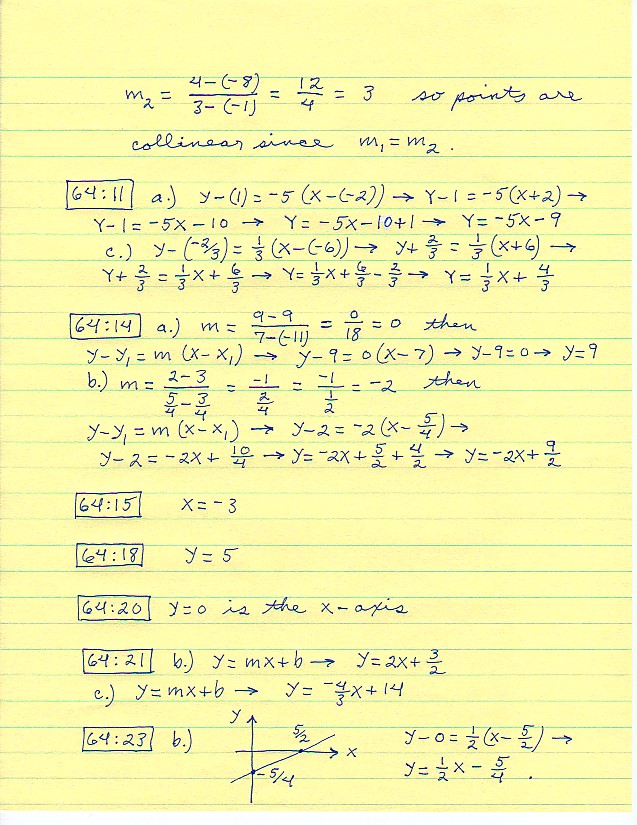 m₂ = (4-(-8))/(3-(-1)) = 12/4 = 3 so points are
collinear since m₁ = m₂.
64:11 a.) y-(1) = -5(x-(-2)) → y-1 = -5(x+2) →
y-1 = -5x-10 → y = -5x-10+1 → y = -5x-9
c.) y-(-2/3) = 1/3(x-(-6)) → y+2/3 = 1/3(x+6) →
y+2/3 = 1/3x+6/3 → y = 1/3x+6/3-2/3 → y = 1/3x+4/3
64:14 a.) m = (9-9)/(7-(-11)) = 0/18 = 0 then
y-y₁ = m(x-x₁) → y-9 = 0(x-7) → y-9=0 → y=9
b.) m = (2-3)/(5/4-3/4) = -1/(2/4) = -1/(1/2) = -2 then
y-y₁ = m(x-x₁) → y-2 = -2(x-5/4) →
y-2 = -2x+10/4 → y = -2x+5/2+4/2 → y = -2x+9/2
64:15 x = -3
64:18 y = 5
64:20 y=0 is the x-axis
64:21 b.) y = mx+b → y = 2x+3/2
c.) y = mx+b → y = -4/3x+14
64:23 b.) y x 5/2 -5/4 y-0 = 1/2(x-5/2) →
y = 1/2x - 5/4.